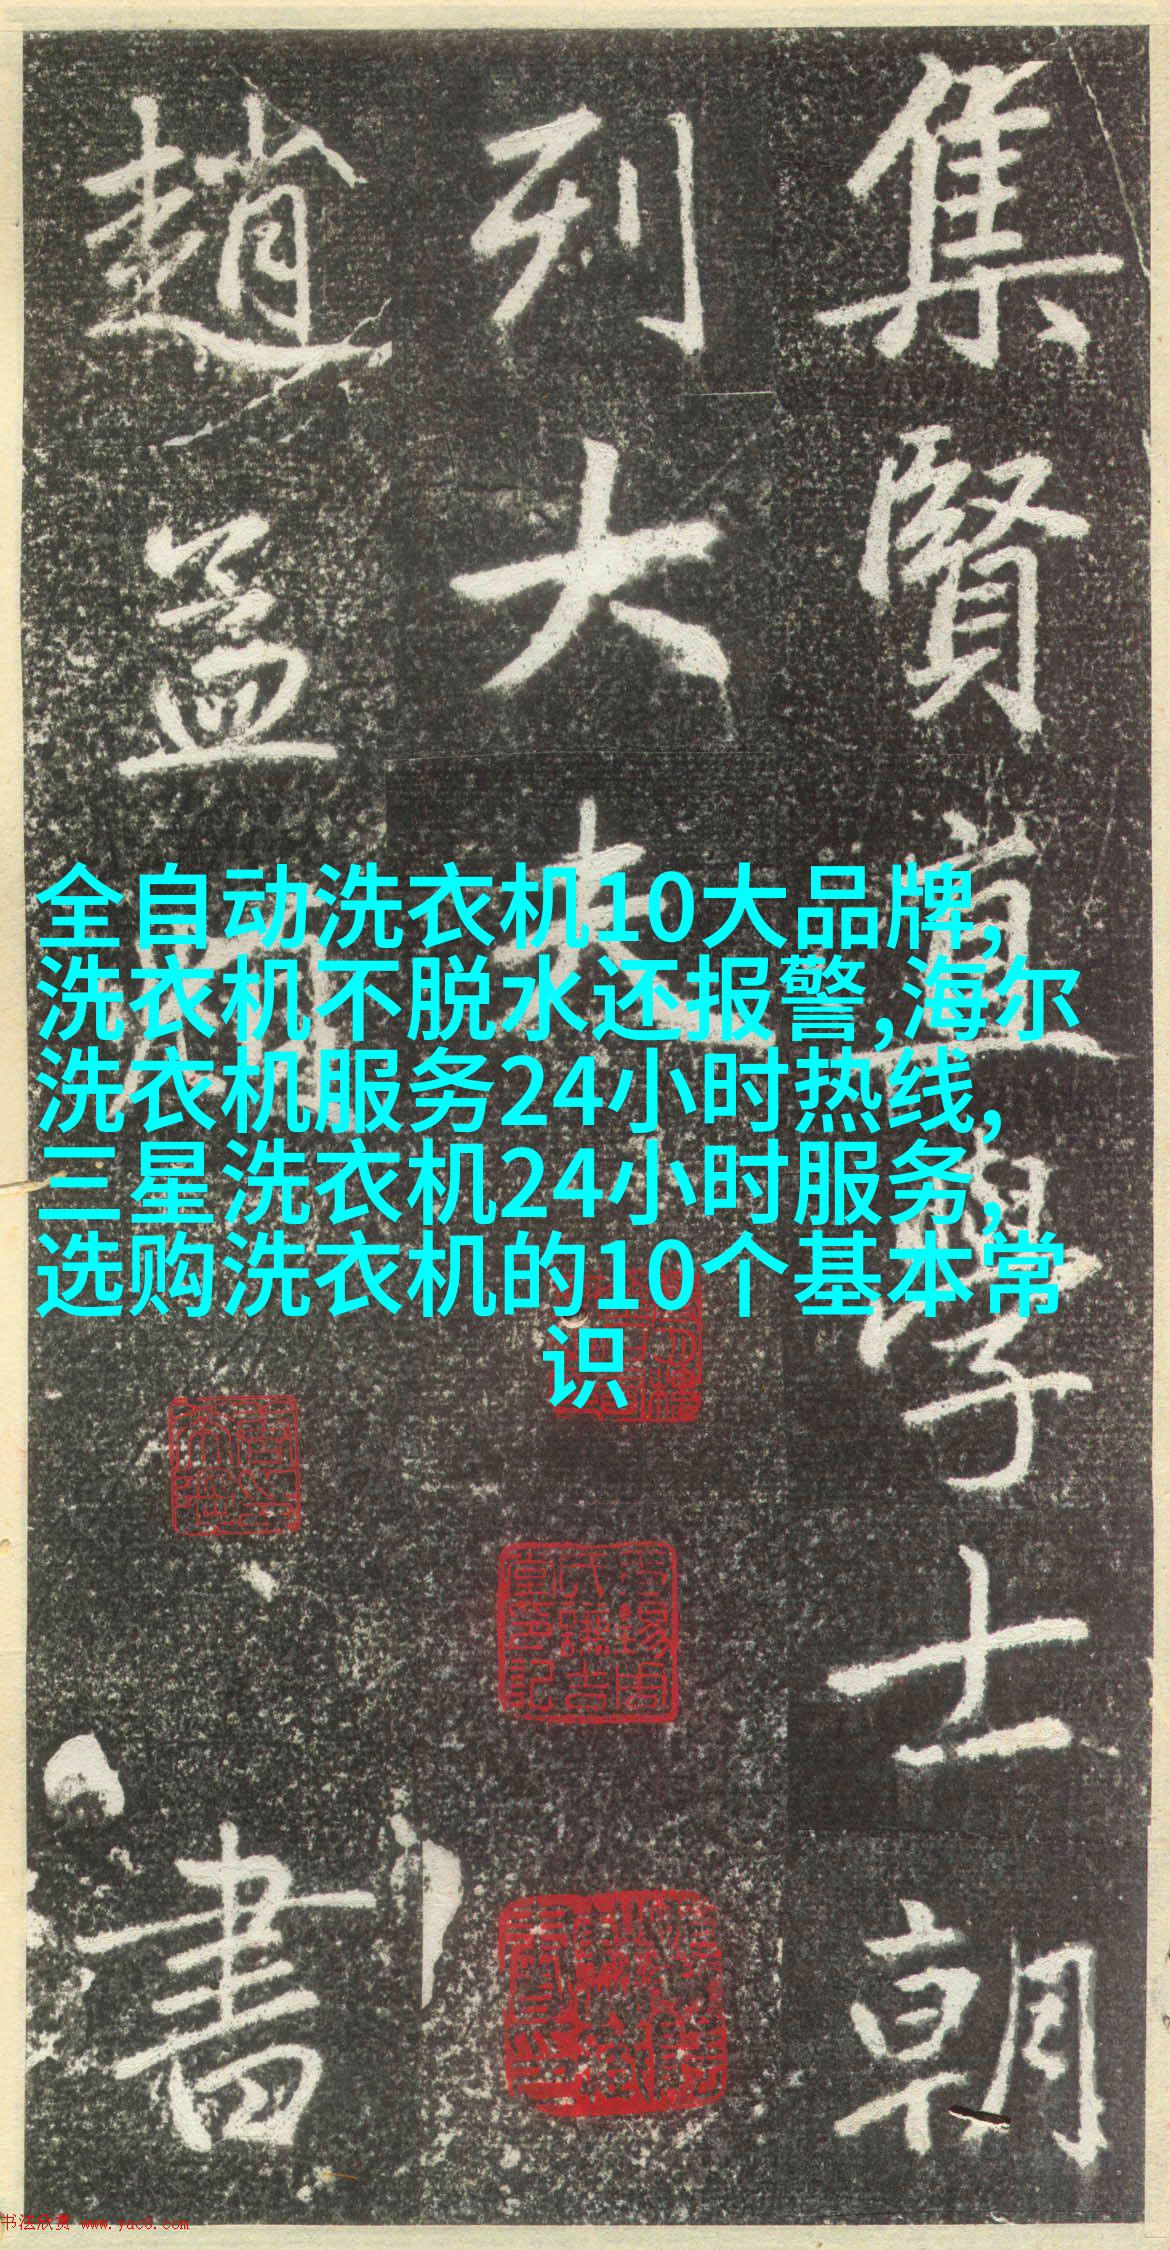 集賢直學士朝
列大夫
趙孟頫
書
全自动洗衣机10大品牌,
洗衣机不脱水还报警,海尔
洗衣机服务24小时热线,
三星洗衣机24小时服务,
选购洗衣机的10个基本常
识
书法欣赏 www.yac8.com